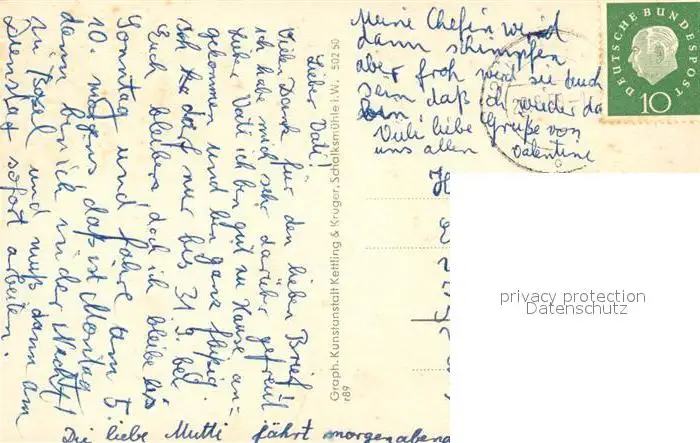 Lieber Vati!
Vielen Dank für den lieben Brief
ich habe mich sehr darüber gefreut
Lieber Vati ich bin gut zu Hause an=
gekommen und bin ganz fleißig.
Ich darf nur bis 31. 9. bei
Euch bleiben, doch ich bleibe bis
Sonntag und fahre am 5.
10. morgens das ist Montag
dann bin ich in der Nacht
in Basel und muß dann am
Dienstag sofort arbeiten.
Die liebe Mutti fährt morgen abend
Meine Chefin wird
dann schimpfen
aber froh wird sie auch
sein daß ich wieder da
bin
Viele liebe Grüße von
uns allen Valentine
Graph. Kunstanstalt Kettling & Krüger, Schalksmühle i. W. 50250
r89
DEUTSCHE BUNDESPOST
10
privacy protection
Datenschutz